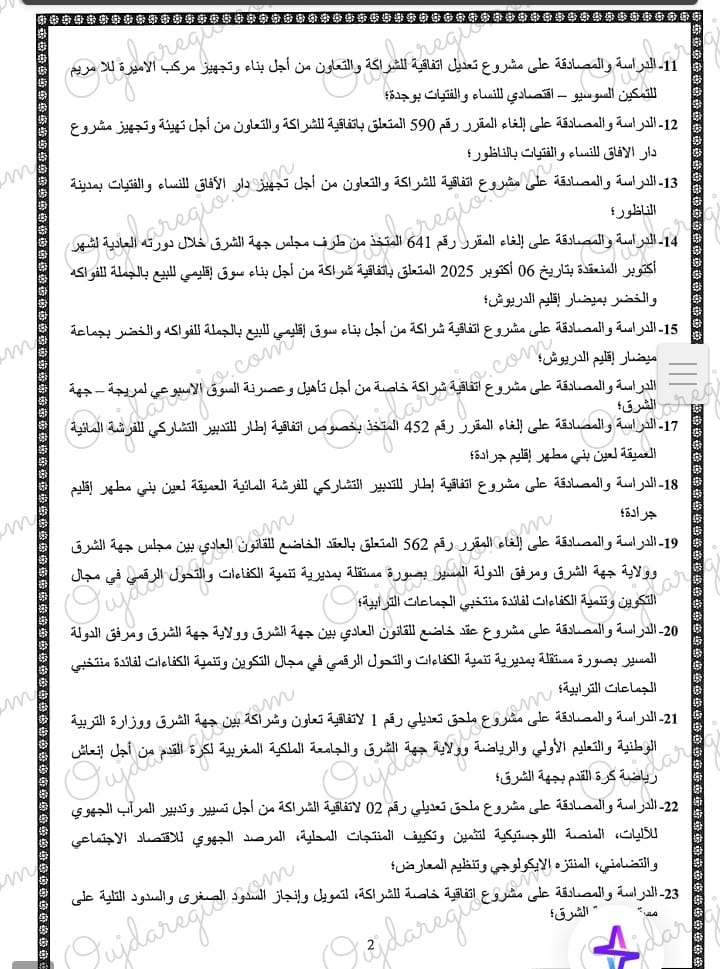 11-الدراسة والمصادقة على مشروع تعديل اتفاقية للشراكة والتعاون من أجل بناء وتجهيز مركب الاميرة للا مريم
للتمكين السوسيو – اقتصادي للنساء والفتيات بوجدة؛
12-الدراسة والمصادقة على إلغاء المقرر رقم 590 المتعلق باتفاقية للشراكة والتعاون من أجل تهيئة وتجهيز مشروع
دار الافاق للنساء والفتيات بالناظور؛
13-الدراسة والمصادقة على مشروع اتفاقية للشراكة والتعاون من أجل تجهيز دار الأفاق للنساء والفتيات بمدينة
الناظور؛
14-الدراسة والمصادقة على إلغاء المقرر رقم 641 المتخذ من طرف مجلس جهة الشرق خلال دورته العادية لشهر
أكتوبر المنعقدة بتاريخ 06 أكتوبر 2025 المتعلق باتفاقية شراكة من أجل بناء سوق إقليمي للبيع بالجملة للفواكه
والخضر بميضار إقليم الدريوش؛
15-الدراسة والمصادقة على مشروع اتفاقية شراكة من أجل بناء سوق إقليمي للبيع بالجملة للفواكه والخضر بجماعة
ميضار إقليم الدريوش؛
الدراسة والمصادقة على مشروع اتفاقية شراكة خاصة من أجل تأهيل وعصرنة السوق الاسبوعي لمريجة – جهة
الشرق؛
17-الدراسة والمصادقة على إلغاء المقرر رقم 452 المتخذ بخصوص اتفاقية إطار للتدبير التشاركي للفرشة المائية
العميقة لعين بني مطهر إقليم جرادة؛
18-الدراسة والمصادقة على مشروع اتفاقية إطار للتدبير التشاركي للفرشة المائية العميقة لعين بني مطهر إقليم
جرادة؛
19-الدراسة والمصادقة على إلغاء المقرر رقم 562 المتعلق بالعقد الخاضع للقانون العادي بين مجلس جهة الشرق
وولاية جهة الشرق ومرفق الدولة المسير بصورة مستقلة بمديرية تنمية الكفاءات والتحول الرقمي في مجال
التكوين وتنمية الكفاءات لفائدة منتخبي الجماعات الترابية؛
20-الدراسة والمصادقة على مشروع عقد خاضع للقانون العادي بين جهة الشرق وولاية جهة الشرق ومرفق الدولة
المسير بصورة مستقلة بمديرية تنمية الكفاءات والتحول الرقمي في مجال التكوين وتنمية الكفاءات لفائدة منتخبي
الجماعات الترابية؛
21-الدراسة والمصادقة على مشروع ملحق تعديلي رقم 1 لاتفاقية تعاون وشراكة بين جهة الشرق ووزارة التربية
الوطنية والتعليم الأولي والرياضة وولاية جهة الشرق والجامعة الملكية المغربية لكرة القدم من أجل إنعاش
رياضة كرة القدم بجهة الشرق؛
22-الدراسة والمصادقة على مشروع ملحق تعديلي رقم 02 لاتفاقية الشراكة من أجل تسيير وتدبير المرآب الجهوي
للآليات، المنصة اللوجستيكية لتثمين وتكييف المنتجات المحلية، المرصد الجهوي للاقتصاد الاجتماعي
والتضامني، المنتزه الايكولوجي وتنظيم المعارض؛
23-الدراسة والمصادقة على مشروع اتفاقية خاصة للشراكة، لتمويل وإنجاز السدود الصغرى والسدود التلية على
الشرق؛
2
Oujdaregio.com